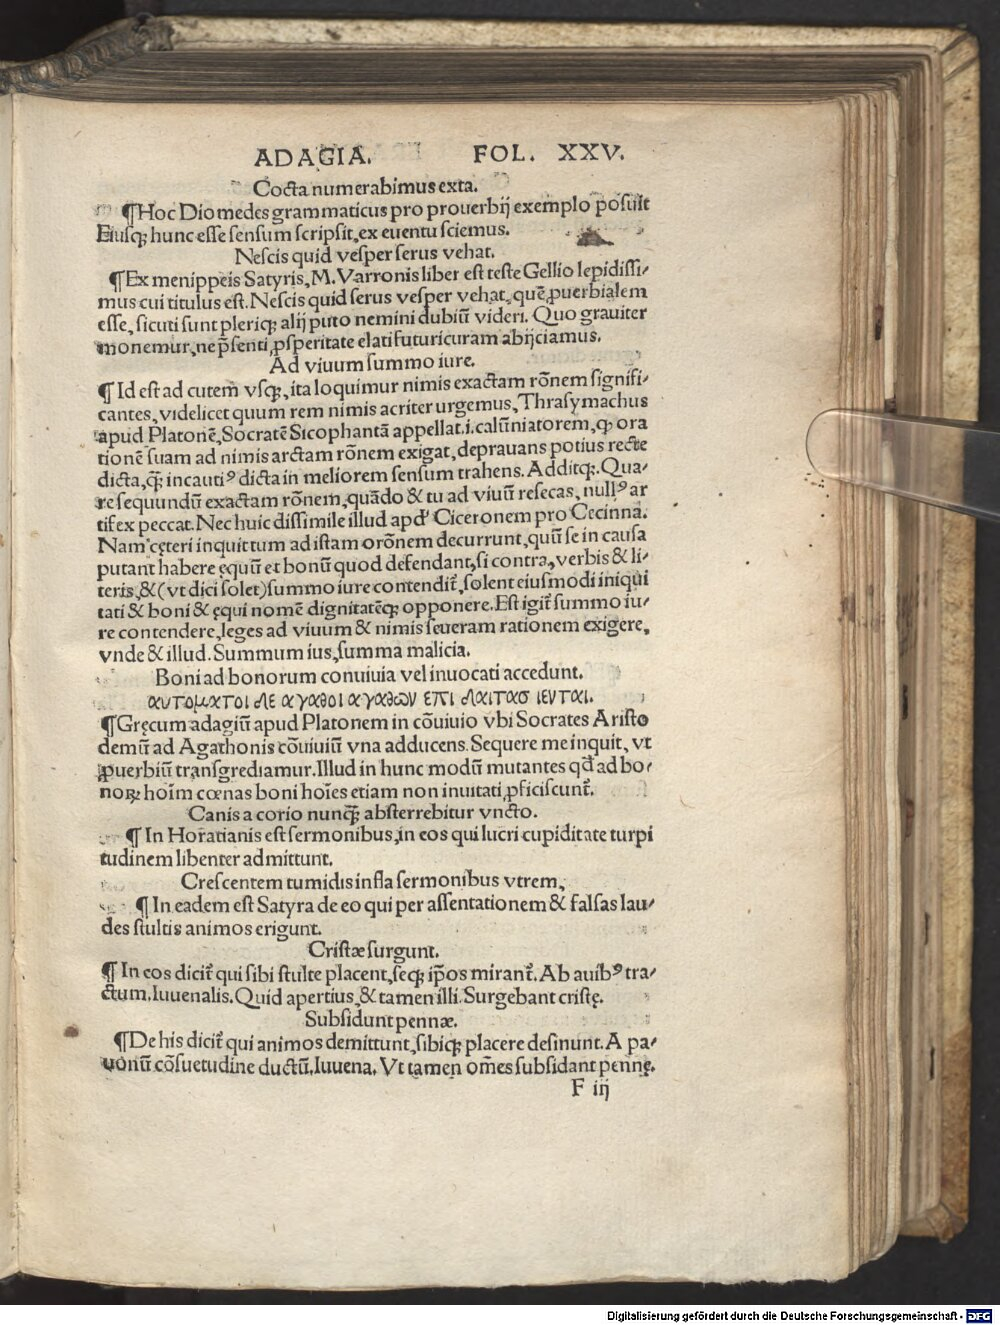 ADAGIA. FOL. XXV.
Cocta numerabimus exta.
¶Hoc Diomedes grammaticus pro prouerbij exemplo posuit
Eiusq; hunc esse sensum scripsit, ex euentu sciemus.
Nescis quid vesper serus vehat.
¶Ex menippeis Satyris, M. Varronis liber est teste Gellio lepidissi/
mus cui titulus est. Nescis quid serus vesper vehat, quē ꝓuerbialem
esse, sicuti sunt pleriq; alij puto nemini dubiū videri. Quo grauiter
monemur, ne p̄senti ꝓsperitate elati futuri curam abijciamus.
Ad viuum summo iure.
¶Id est ad cutem vsq;, ita loquimur nimis exactam rōnem signifi/
cantes, videlicet quum rem nimis acriter urgemus, Thrasymachus
apud Platonē, Socratē Sicophantā appellat.i. calūniatorem, ꝙ ora
tionē suam ad nimis arctam rōnem exigat, deprauans potius recte
dicta, q̄ȝ incautiꝰ dicta in meliorem sensum trahens. Additq;. Qua/
re sequundū exactam rōnem, quādo & tu ad viuū resecas, nullꝰ ar
tifex peccat. Nec huic dissimile illud apd' Ciceronem pro Cecinna.
Nam cęteri inquit tum ad istam orōnem decurrunt, quū se in causa
putant habere ęquū et bonū quod defendant, si contra, verbis & li/
teris, & (vt dici solet) summo iure contendit̃, solent eiusmodi iniqui
tati & boni & ęqui nomē dignitatēq; opponere. Est igit̃ summo iu/
re contendere, leges ad viuum & nimis seueram rationem exigere,
vnde & illud. Summum ius, summa malicia.
Boni ad bonorum conuiuia vel inuocati accedunt.
αυτοματοι δε αγαθοι αγαθων επι δαιτασ ιενται.
¶Gręcum adagiū apud Platonem in cōuiuio vbi Socrates Aristo
demū ad Agathonis cōuiuiū vna adducens. Sequere me inquit, vt
ꝓuerbiū transgrediamur. Illud in hunc modū mutantes qd̄ ad bo/
noꝝ hoīm cœnas boni hoīes etiam non inuitati ꝓficiscunt̃.
Canis a corio nunq̄ȝ absterrebitur vncto.
¶In Horatianis est sermonibus, in eos qui lucri cupiditate turpi
tudinem libenter admittunt.
Crescentem tumidis infla sermonibus vtrem,
¶In eadem est Satyra de eo qui per assentationem & falsas lau/
des stultis animos erigunt.
Cristæ surgunt.
¶In eos dicit̃ qui sibi stulte placent, seq; ip̄os mirant̃. Ab auibꝰ tra/
ctum. Iuuenalis. Quid apertius, & tamen illi. Surgebant cristę.
Subsidunt pennæ.
¶De his dicit̃ qui animos demittunt, sibiq; placere desinunt. A pa/
uonū cōsuetudine ductū. Iuuena. Vt tamen om̄es subsidant pennę.
F iij
Digitalisierung gefördert durch die Deutsche Forschungsgemeinschaft - DFG